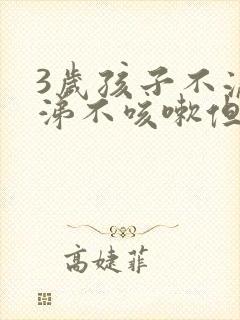 3岁孩子不流
涕不咳嗽但
高婕菲